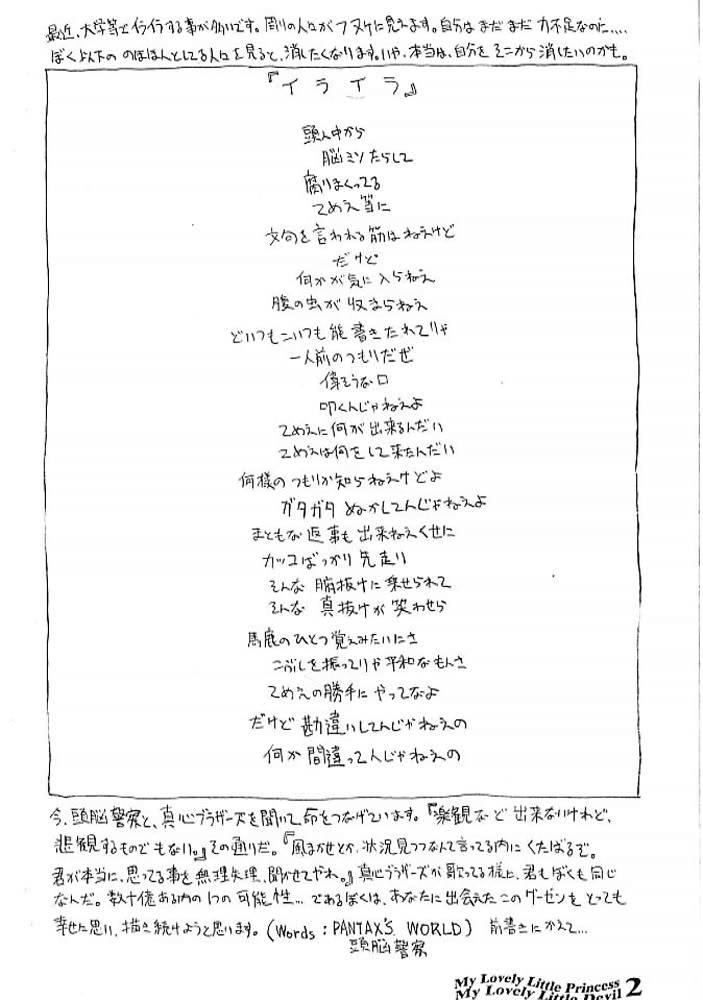 最近、大学等でイライラする事が多いです。周りの人がフヌケに見えます。自分はまだまだ力不足なのに....
ぼく以下ののほほんとしてる人を見ると、消したくなります。いや、本当は、自分をそこから消したいのかも。
『イライラ』
頭ん中から
脳ミソたらして
腐りまくってる
てめえ等に
文句を言われる筋はねえけど
だけど
何かが気に入らねえ
腹の虫が収まらねえ
どいつもこいつも能書きたれてりゃ
一人前のつもりだぜ
偉そうな口
叩くんじゃねえよ
てめえに何が出来るんだい
てめえは何をして来たんだい
何様のつもりか知らねえけどよ
ガタガタぬかしてんじゃねえよ
まともな返事も出来ねえくせに
カッコばっかり先走り
そんな腑抜けに乗せられて
そんな真抜けが笑わせら
馬鹿のひとつ覚えみたいにさ
こぶしを振ってりゃ平和なもんさ
てめえの勝手にやってなよ
だけど勘違いしてんじゃねえの
何か間違ってんじゃねえの
今、頭脳警察と、真心ブラザーズを聞いて、命をつなげています。『楽観など出来ないけれど、
悲観するものでもない。』その通りだ。『風まかせとか、状況見つつなんて言ってる内にくたばるぞ。
君が本当に、思ってる事を無理矢理、聞かせてやれ。』真心ブラザーズが歌ってる様に、君もぼくも同じ
なんだ。数十億ある内の1つの可能性... であるぼくは、あなたに出会えたこのゲーセンをとっても
幸せに思い、描き続けようと思います。(Words : PANTAX'S WORLD) 前書きにかえて...
頭脳警察
My Lovely Little Princess
My Lovely Little Devil 2